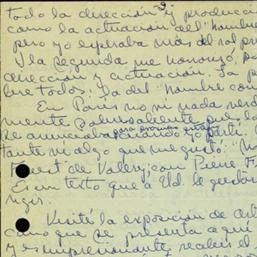 todo la dirección y producc
como la actuación del "hombre
pero yo esperaba más del rol pr
y la segunda me
dirección y actuación. La p
bre todos. La del "hombre con
En París no vi nada verd
mente sobresaliente pues lo
se anunciaba
tante vi algo que me gustó: "Mo
Faust" de Valery, con Pierre F
Es un texto que a Ud. le gustar
rigir.
Visité la exposición de art
cano que se presenta aquí
y es impresionante